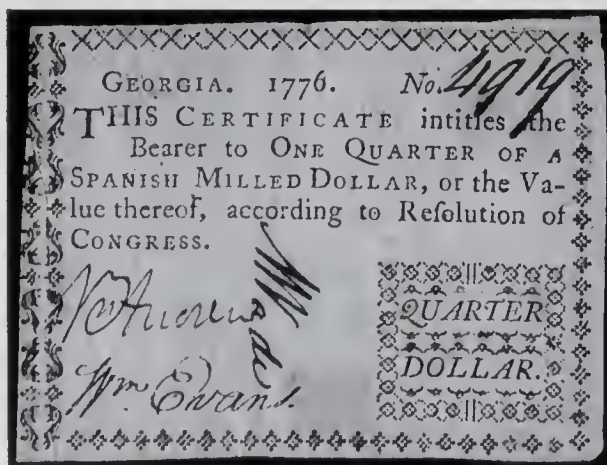 GEORGIA. 1776. No. 4919
THIS CERTIFICATE intitles the
Bearer to ONE QUARTER OF A
SPANISH MILLED DOLLAR, or the Va-
lue thereof, according to Reſolution of
CONGRESS.
Wade
Wm Evans.
QUARTER
DOLLAR.